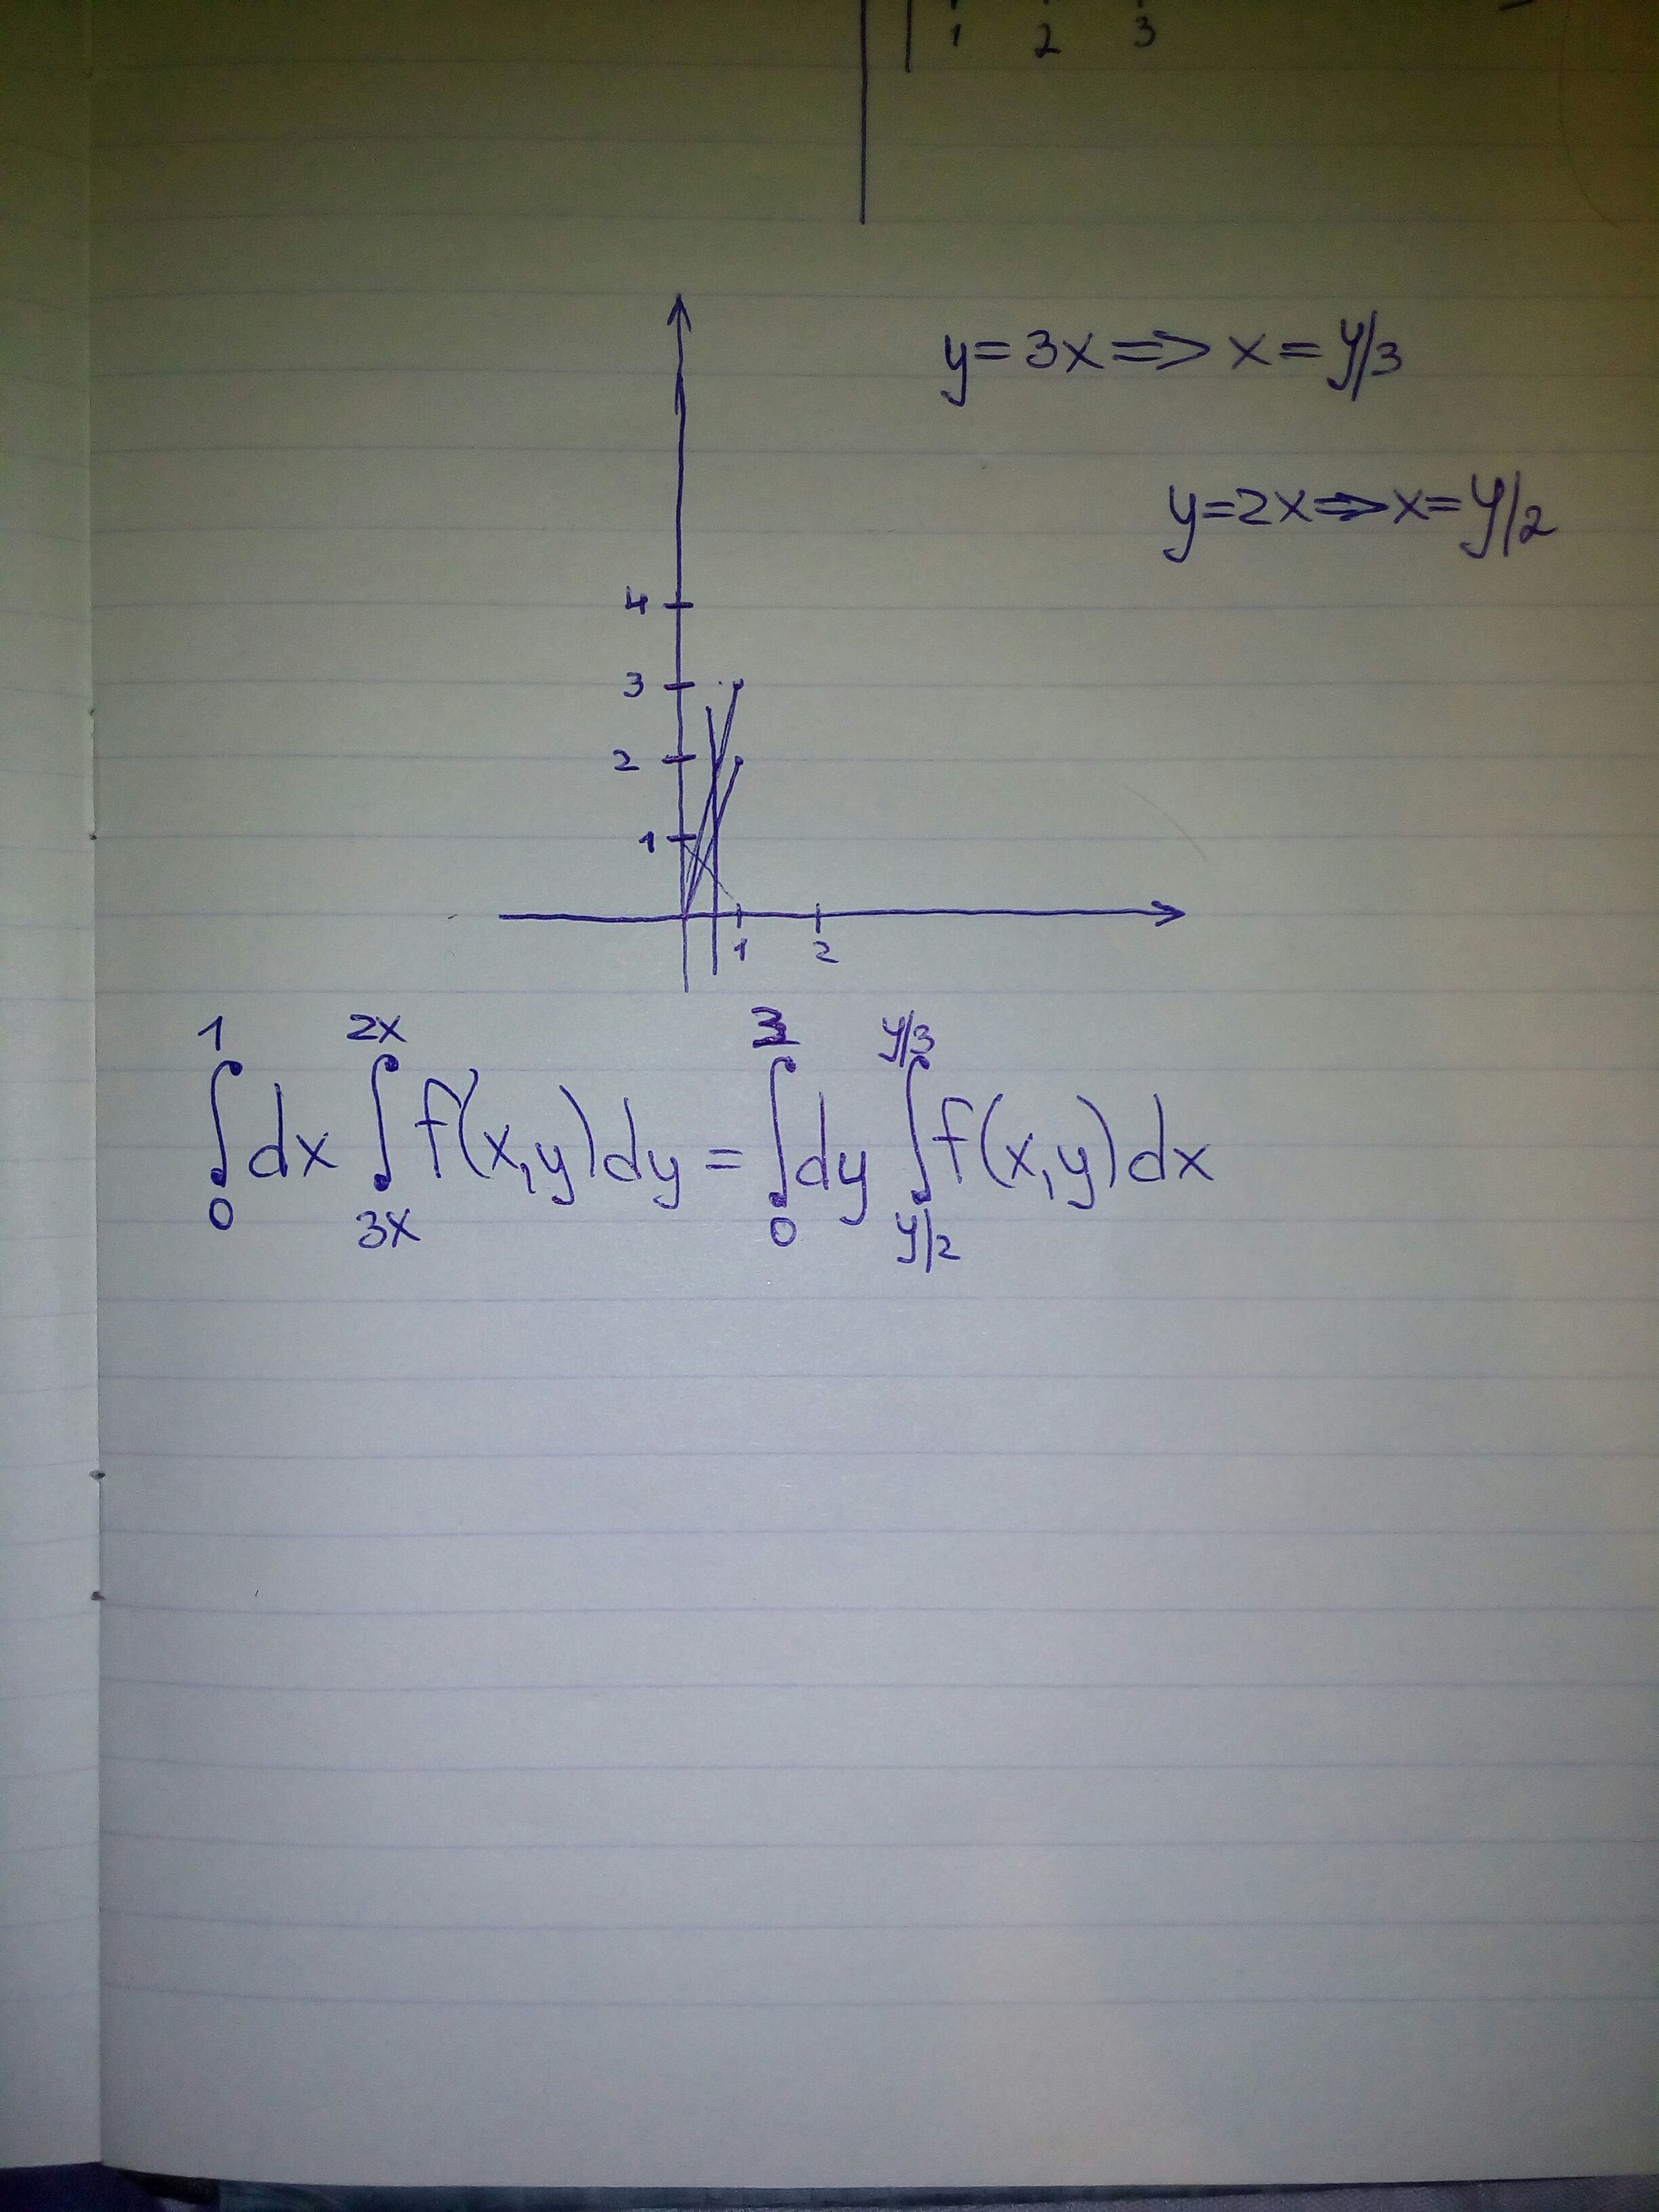 1 2 3
y=3x=>x=y/3
y=2x=>x=y/2
4
3
2
1
1 2
1 2x 3 y/3
∫dx∫f(x,y)dy=∫dy∫f(x,y)dx
0 3x 0 y/2